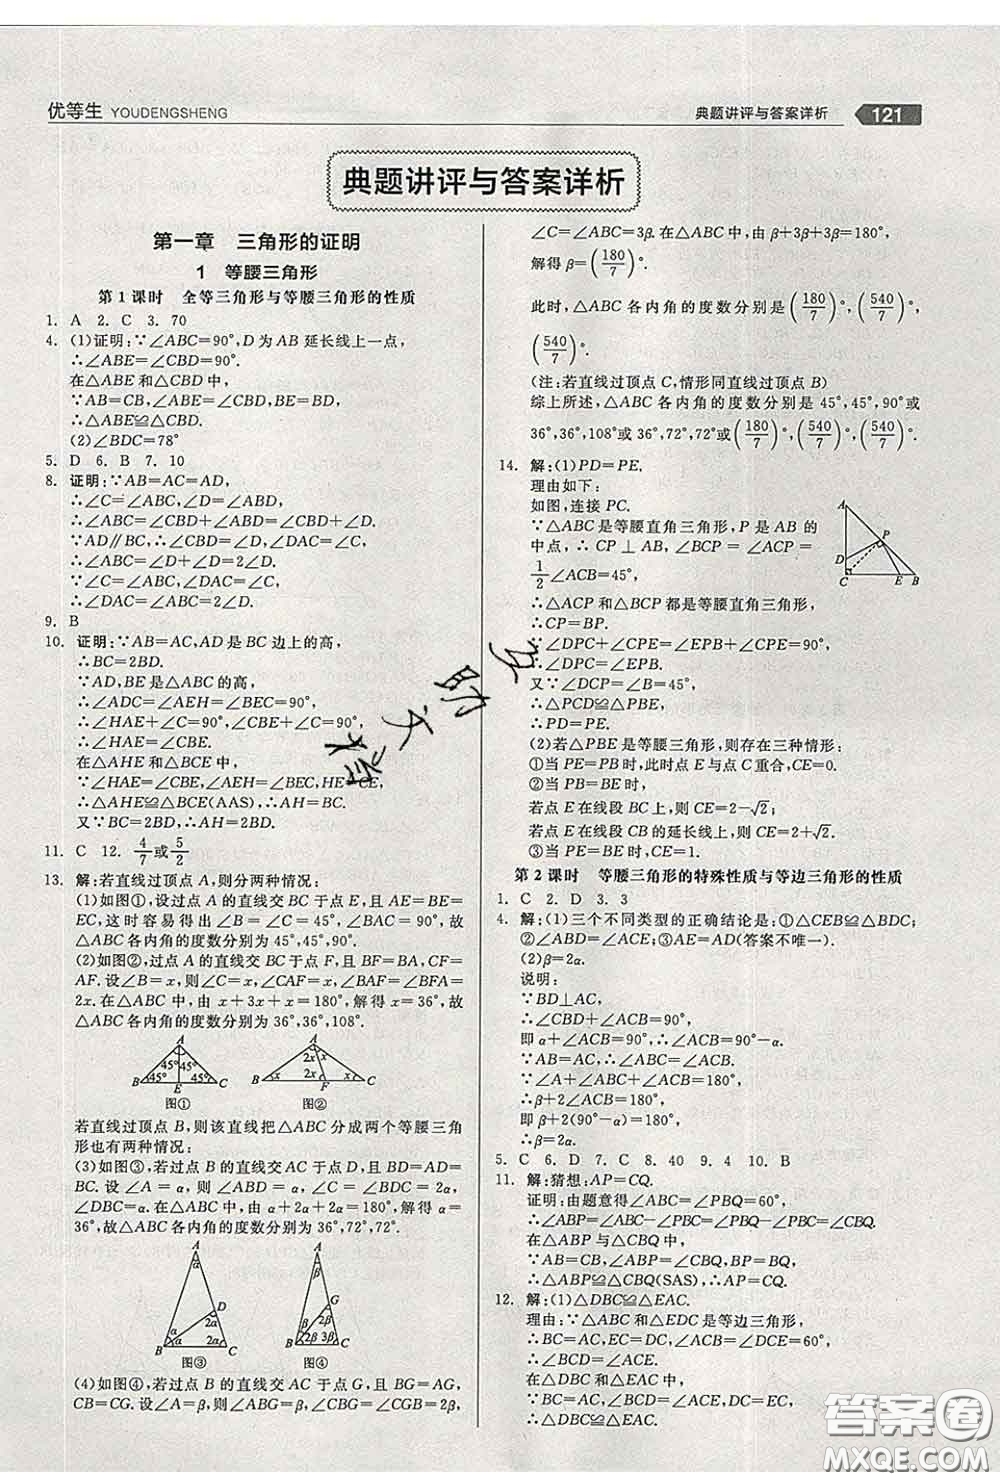 优等生 YOUDENGSHENG
典题讲评与答案详析 121
典题讲评与答案详析
第一章 三角形的证明
1 等腰三角形
第1课时 全等三角形与等腰三角形的性质
1. A 2. C 3. 70
4. (1)证明:∵∠ABC=90°,D为AB延长线上一点,
∴∠ABE=∠CBD=90°.
在△ABE和△CBD中,
∵AB=CB,∠ABE=∠CBD,BE=BD,
∴△ABE≌△CBD.
(2)∠BDC=78°
5. D 6. B 7. 10
8. 证明:∵AB=AC=AD,
∴∠C=∠ABC,∠D=∠ABD,
∴∠ABC=∠CBD+∠ABD=∠CBD+∠D.
∵AD∥BC,∴∠CBD=∠D,∠DAC=∠C.
∴∠ABC=∠D+∠D=2∠D.
∴∠DAC=∠ABC=2∠D.
9. B
10. 证明:∵AB=AC,AD是BC边上的高,
∴BC=2BD.
∵AD,BE是△ABC的高,
∴∠ADC=∠AEH=∠BEC=90°.
∴∠HAE+∠C=90°,∠CBE+∠C=90°.
∴∠HAE=∠CBE.
在△AHE和△BCE中,
∵∠HAE=∠CBE,∠AEH=∠BEC,HE=CE,
∴△AHE≌△BCE(AAS),∴AH=BC.
又∵BC=2BD,∴AH=2BD.
11. C 12. 4/7或5/2
13. 解:若直线过顶点A,则分两种情况:
(1)如图①,设过点A的直线交BC于点E,且AE=BE=EC,这时容易得出∠B=∠C=∠1=∠2=45°,故△ABC各内角的度数分别为45°,45°,90°.
(2)如图②,过点A的直线交BC于点F,且AF=BA,CF=AF.设∠B=x,则∠C=x,∠CAF=x,∠AFB=∠BAF=2x.在△ABC中,由x+3x+x=180°,解得x=36°,故△ABC各内角的度数分别为36°,36°,108°.
A
45° 45°
45° 45°
B E C
图①
A
2x x
x 2x x
B F C
图②
若直线过顶点B,则该直线把△ABC分成两个等腰三角形也有两种情况:
(3)如图③,若过点B的直线交AC于点D,且AD=BD,BD=BC.设∠A=α,则∠ABD=α,∠BDC=2α,∠C=2α,∠DBC=α.在△ABC中,由α+2α+2α=180°,解得α=36°,故△ABC各内角的度数分别为36°,72°,72°.
A
α
D
2α
α
α 2α
B C
图③
A
β
G
β
2β 3β
B C
图④
(4)如图④,若过点B的直线交AC于点G,且AG=BG,CB=CG.设∠A=β,则∠ABG=β,∠BGC=∠CBG=2β,
∠C=∠ABC=3β.在△ABC中,由β+3β+3β=180°,
解得β=(180/7)°.
此时,△ABC各内角的度数分别是(180/7)°,(540/7)°,
(540/7)°.
(注:若直线过顶点C,情形同直线过顶点B)
综上所述,△ABC各内角的度数分别是45°,45°,90°或
36°,36°,108°或36°,72°,72°或(180/7)°,(540/7)°,(540/7)°.
14. 解:(1)PD=PE.
理由如下:
如图,连接PC.
∵△ABC是等腰直角三角形,P是AB的
中点,∴CP⊥AB,∠BCP=∠ACP=
1/2∠ACB=45°,
∴△ACP和△BCP都是等腰直角三角形,
∴CP=BP.
∵∠DPC+∠CPE=∠EPB+∠CPE,
∴∠DPC=∠EPB.
又∵∠DCP=∠B=45°,
∴△PCD≌△PBE,
∴PD=PE.
A
P
D
C E B
(2)若△PBE是等腰三角形,则存在三种情形:
①当PE=PB时,此时点E与点C重合,CE=0.
②当PB=BE时,
若点E在线段BC上,则CE=2-√2;
若点E在线段CB的延长线上,则CE=2+√2.
③当PE=BE时,CE=1.
第2课时 等腰三角形的特殊性质与等边三角形的性质
1. C 2. D 3. 3
4. 解:(1)三个不同类型的正确结论是:①△CEB≌△BDC;
②∠ABD=∠ACE;③AE=AD(答案不唯一).
(2)β=2α.
说明:
∵BD⊥AC,
∴∠CBD+∠ACB=90°,
即α+∠ACB=90°,∴∠ACB=90°-α.
∵AB=AC,∴∠ABC=∠ACB.
∵∠A+∠ABC+∠ACB=180°,
∴β+2∠ACB=180°,
即β+2(90°-α)=180°,
∴β=2α.
5. C 6. D 7. C 8. 40 9. 4 10. B
11. 解:猜想:AP=CQ.
证明:由题意得∠ABC=∠PBQ=60°,
∴∠ABP=∠ABC-∠PBC=∠PBQ-∠PBC=∠CBQ.
在△ABP与△CBQ中,
∵AB=CB,∠ABP=∠CBQ,BP=BQ,
∴△ABP≌△CBQ(SAS),∴AP=CQ.
12. 解:(1)△DBC≌△EAC.
理由:∵△ABC和△EDC是等边三角形,
∴BC=AC,EC=DC,∠ACB=∠DCE=60°,
∴∠BCD=∠ACE.
在△DBC和△EAC中,
∵BC=AC,∠BCD=∠ACE,DC=EC,
∴△DBC≌△EAC.
答案圈
MXQE.COM